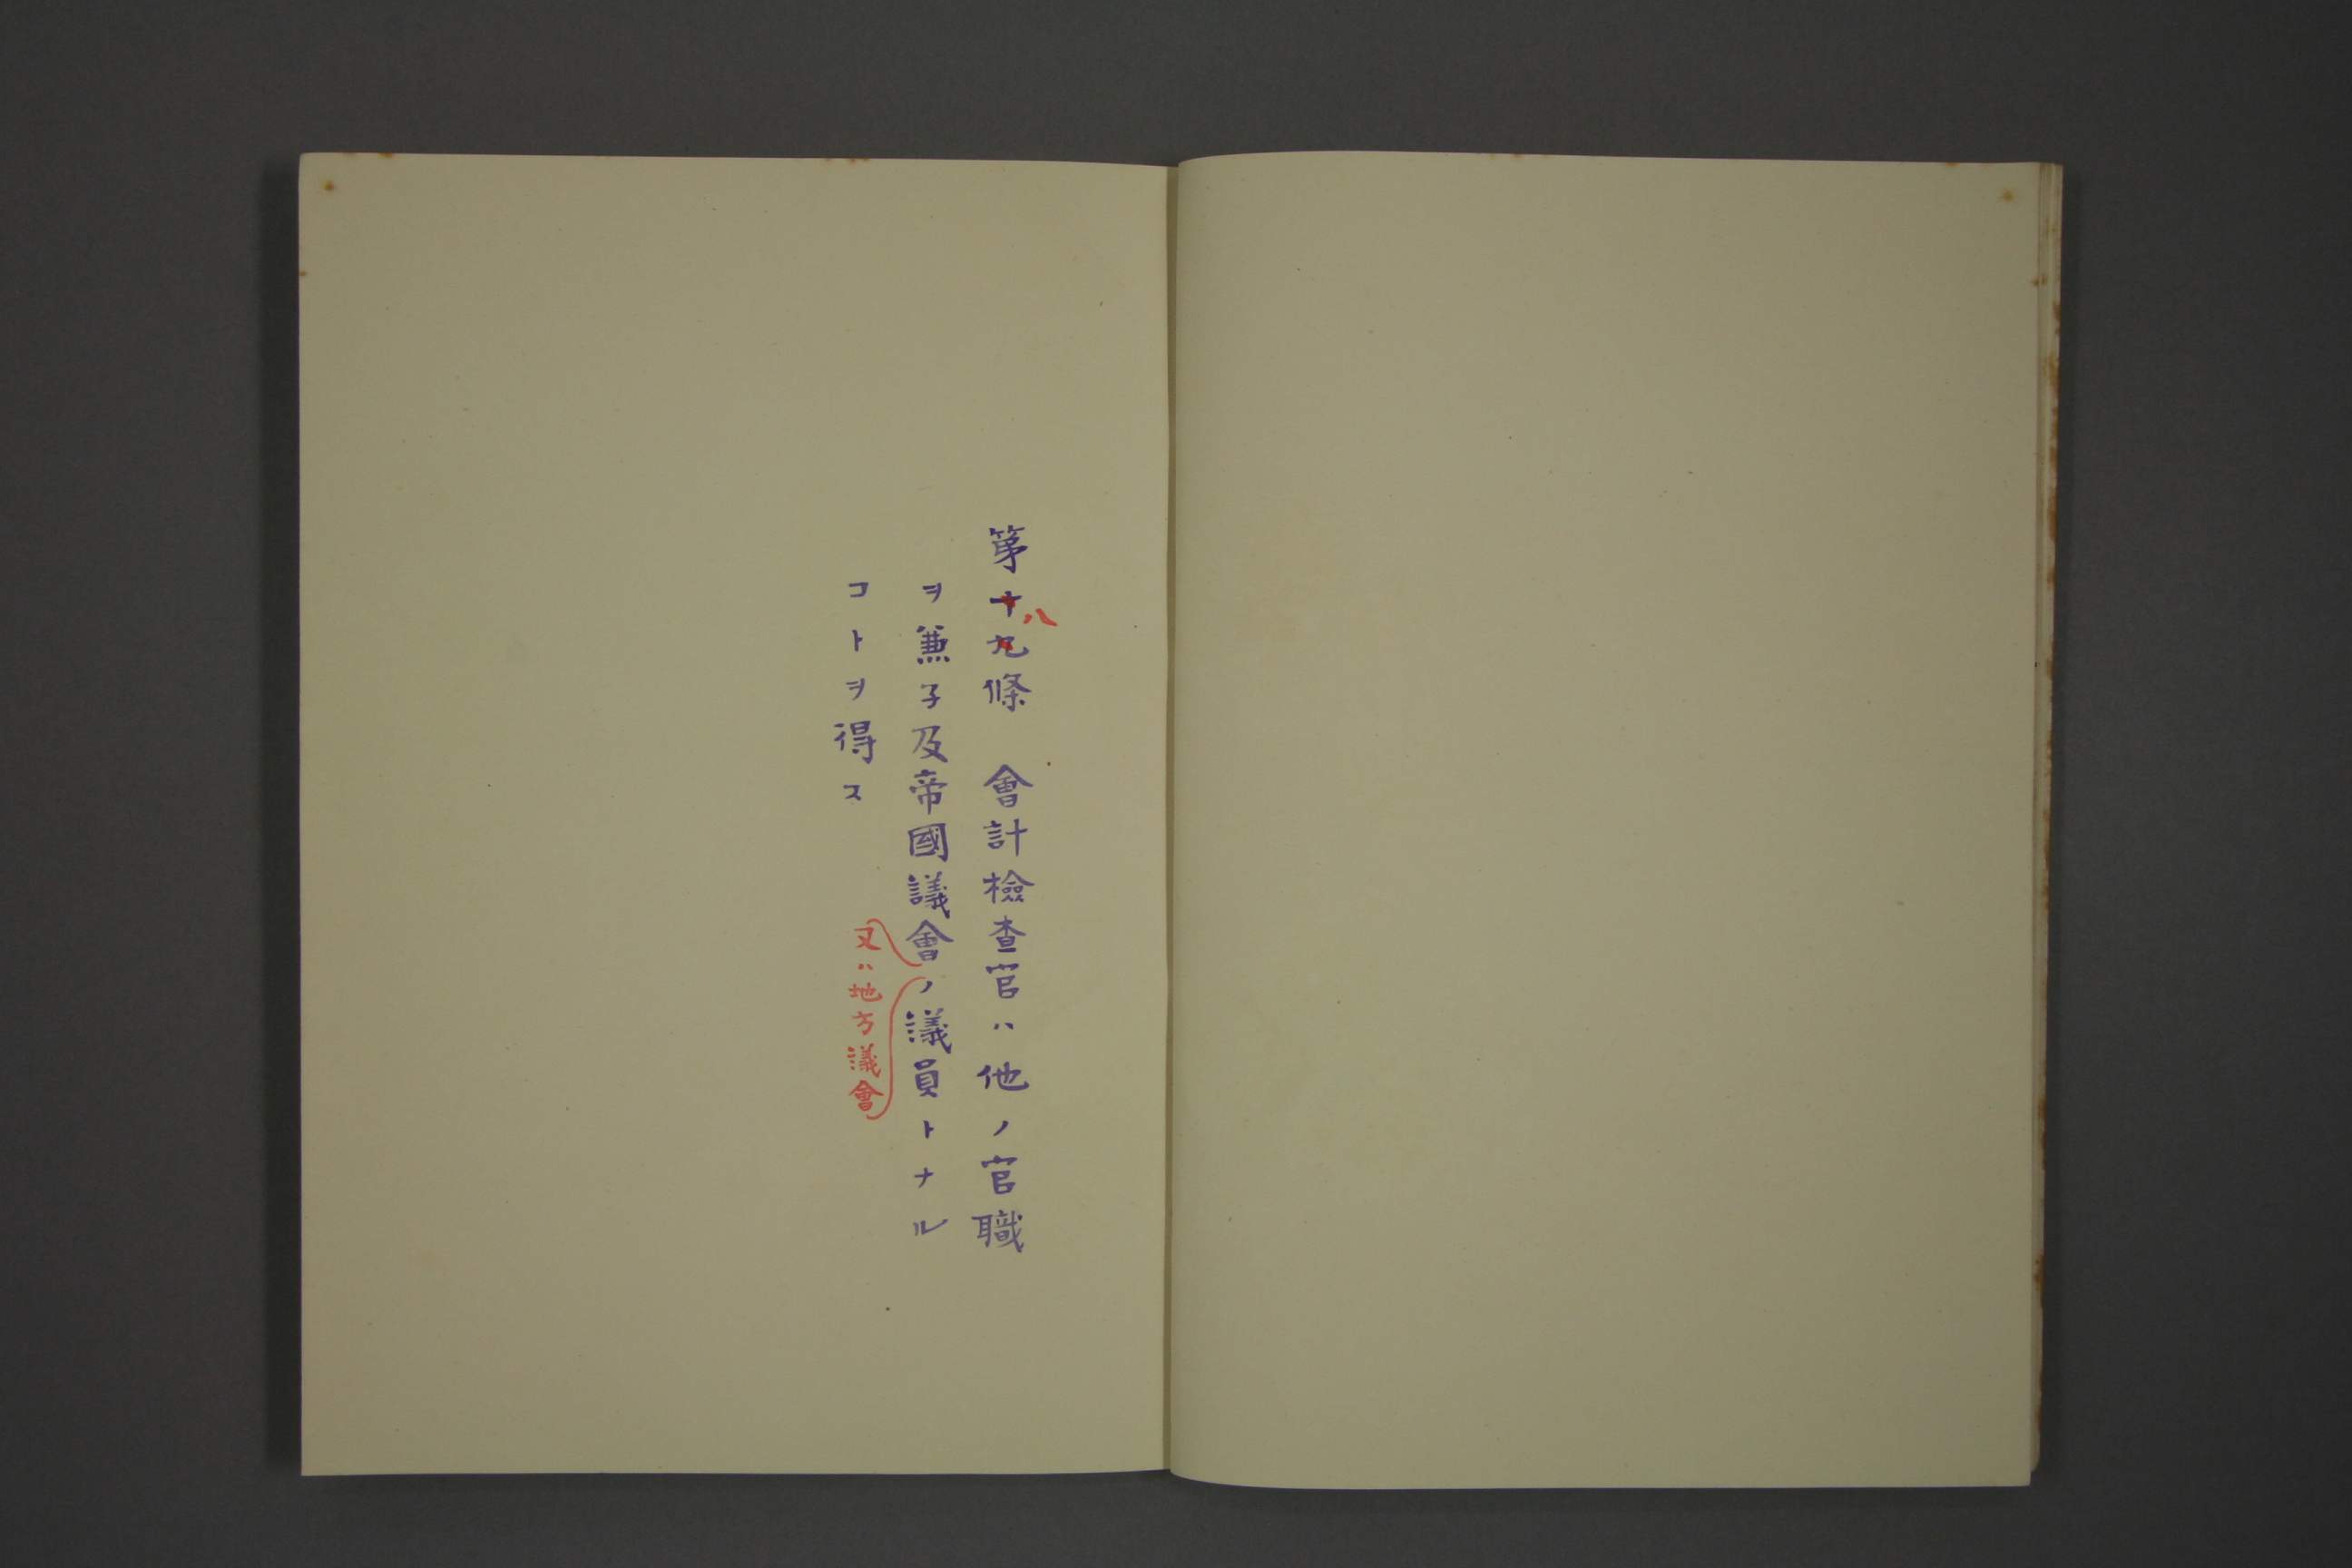 第十九條　會計檢查官ハ他ノ官職
八
ヲ兼子及帝國議會ノ議員トナル
又ハ地方議會
コトヲ得ス